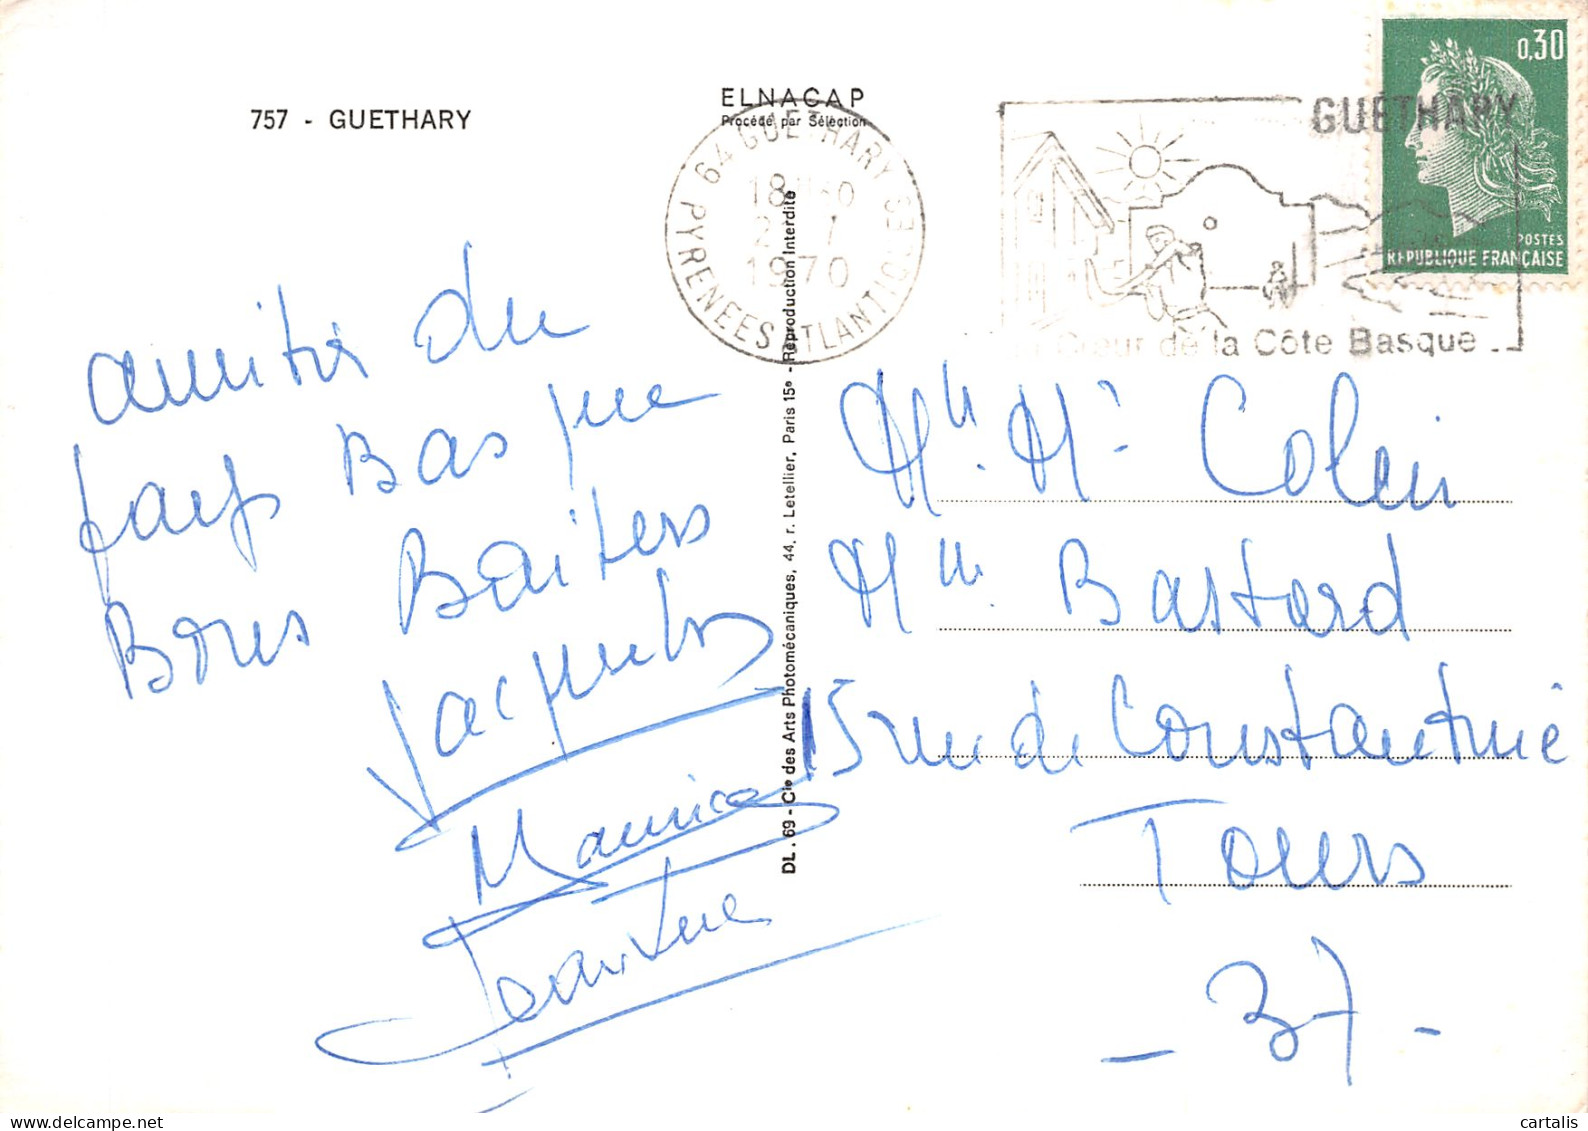 757 - GUETHARY
ELNACAP
Procédé par Sélection
64 GUETHARY
PYRENEES ATLANTIQUES
18H30
1970
GUÉTHARY
Cœur de la Côte Basque
0,30
POSTES
REPUBLIQUE FRANÇAISE
DL. 69 - Cie des Arts Photomécaniques, 44, r. Letellier, Paris 15e - Reproduction Interdite
amitiés du
pays Basque
Bons Baisers
Maurice
Jeantine
Mr. Me Colin
Mlle Bastard
15 rue de Constantine
Tours
- 37 -
cartalis
www.delcampe.net